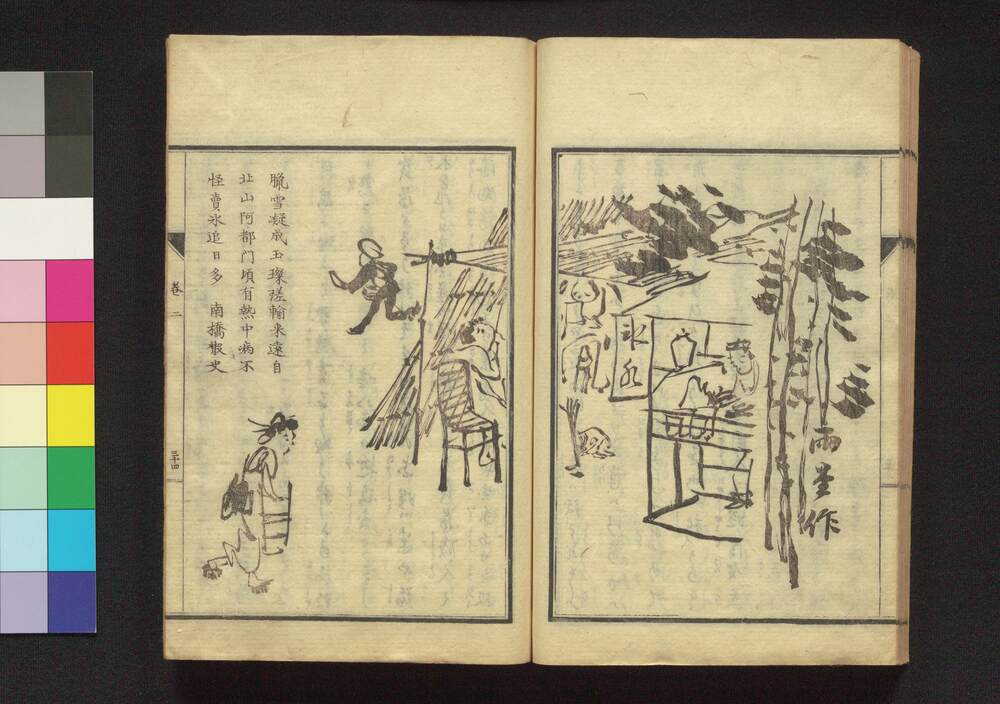 雨笙作
氷水
臘雪凝成玉璨瑳輸来遠自
北山阿都門頃有熱中病不
怪賣氷追日多　南橋散史
巻二
三十四